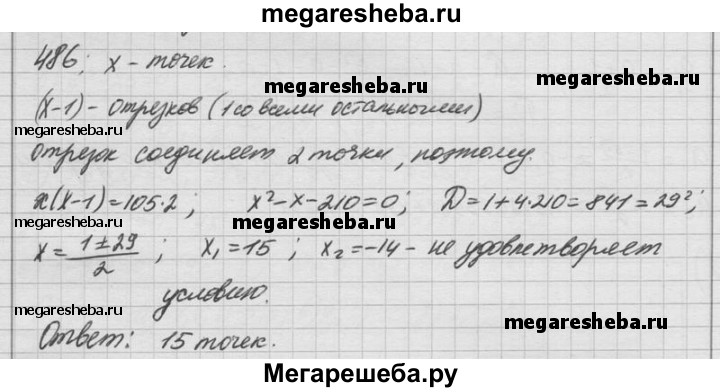 megaresheba.ru
486; x - точек.
megaresheba.ru
(x-1) - отрезков (1 со всеми остальными)
megaresheba.ru
отрезок соединяет 2 точки, поэтому.
megaresheba.ru
x(x-1)=105·2; x²-x-210=0; D=1+4·210=841=29²;
x=(1±29)/2; x₁=15; x₂=-14 - не удовлетворяет
условию.
megaresheba.ru
megaresheba.ru
Ответ: 15 точек.
Мегарешеба.ру